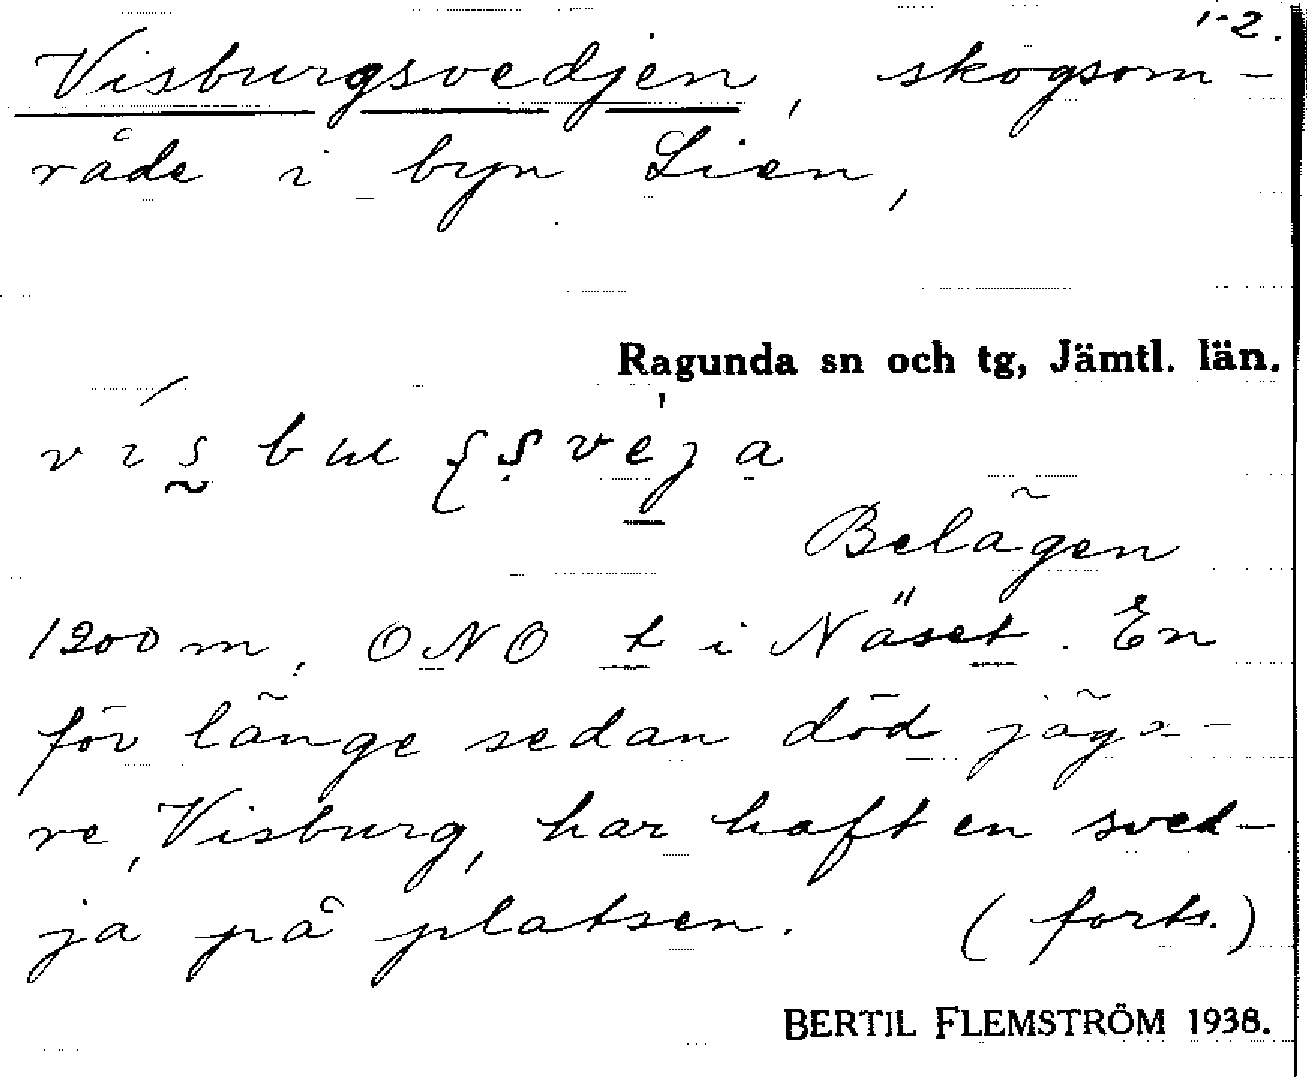 1-2.
Visburgsvedjen, skogsom-
råde i byn Lien,
Ragunda sn och tg, Jämtl. län.
Belägen
1200 m. ONO t i Näset. En
för länge sedan död jäga-
re, Visburg, har haft en sved-
ja på platsen. (forts.)
BERTIL FLEMSTRÖM 1938.